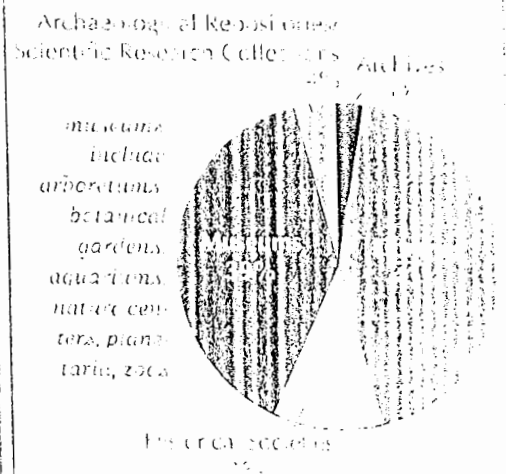 Archaeological Repositories/
Scientific Research Collections
4%
Archives
museums
include
arboretums,
botanical
gardens,
aquariums,
nature cen-
ters, plane-
taria, zoos
Museums
Historical Societies